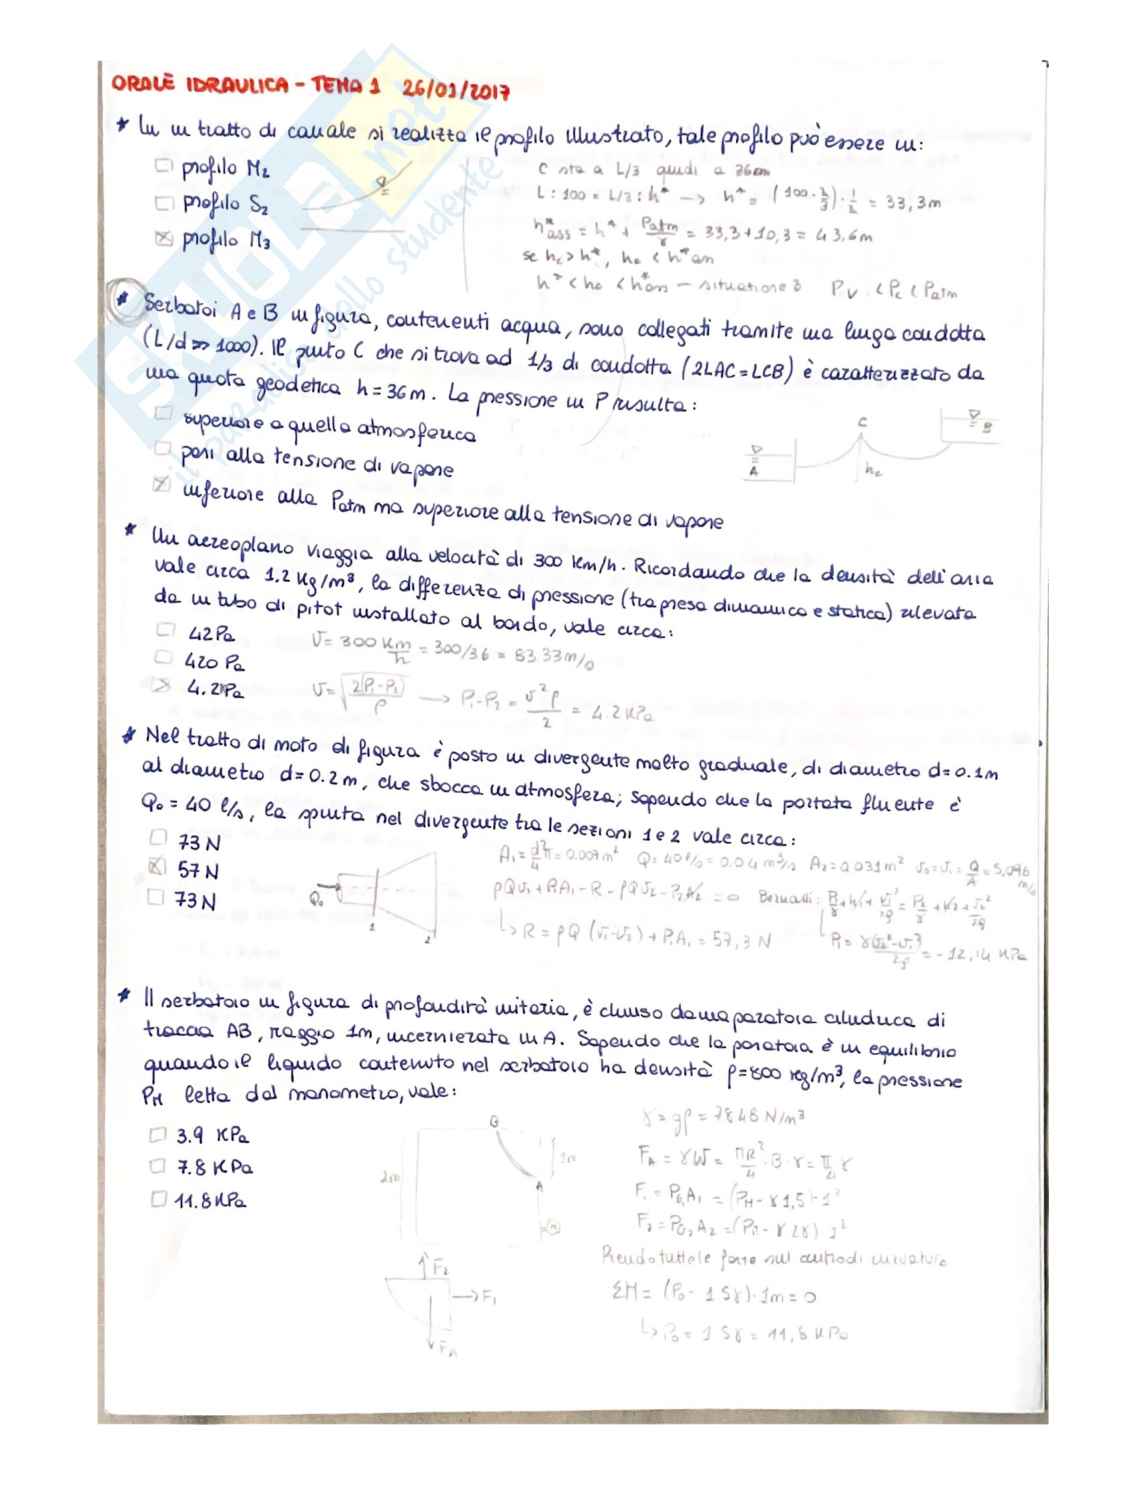 ORALE IDRAULICA - TEMA 1 26/01/2017
* In un tratto di canale si realizza il profilo illustrato, tale profilo può essere un:
profilo M2
profilo S2
profilo M3
C sta a L/3 quindi a 36m
L : 100 = L/3 : h* → h* = (100 · 2/3) · 1/2 = 33,3m
h*ass = h* + Patm/γ = 33,3 + 10,3 = 43,6m
se hc > h*, hc < h*ass
h* < hc < h*ass - situazione 3 Pv < Pc < Patm
* Serbatoi A e B in figura, contenenti acqua, sono collegati tramite una lunga condotta
(L/d >> 1000). Il punto C che si trova ad 1/3 di condotta (2LAC = LCB) è caratterizzato da
una quota geodetica h = 36m. La pressione in P risulta:
superiore a quella atmosferica
pari alla tensione di vapore
inferiore alla Patm ma superiore alla tensione di vapore
A C hc B
* Un aereoplano viaggia alla velocità di 300 Km/h. Ricordando che la densità dell'aria
vale circa 1.2 Kg/m³, la differenza di pressione (tra presa dinamica e statica) rilevata
da un tubo di pitot installato al bordo, vale circa:
42Pa
420 Pa
4.2KPa
V = 300 Km/h = 300/36 = 83 33 m/s
V = √2(P1-P2)/ρ → P1-P2 = v²ρ/2 = 4.2 KPa
* Nel tratto di moto di figura è posto un divergente molto graduale, di diametro d=0.1m
al diametro d=0.2m, che sbocca in atmosfera; sapendo che la portata fluente è
Q0 = 40 l/s, la spinta nel divergente tra le sezioni 1 e 2 vale circa:
73 N
57 N
73 N
Q0 1 2
A1 = d²π/4 = 0.007m² Q = 40 l/s = 0.04 m³/s A2 = 0.031m² V0 = V1 = Q/A = 5,096 m/s
ρQV1 + P1A1 - R - ρQV2 - P2A2 = 0 Bernoulli: P1/γ + h1 + V1²/2g = P2/γ + h2 + V2²/2g
↳ R = ρQ (V1-V2) + P1A1 = 57,3 N
P1 = γ(V2²-V1²)/2g = -12,14 KPa
* Il serbatoio in figura di profondità unitaria, è chiuso da una paratoia cilindrica di
traccia AB, raggio 1m, incernierata in A. Sapendo che la paratoia è in equilibrio
quando il liquido contenuto nel serbatoio ha densità ρ=800 kg/m³, la pressione
PM letta dal manometro, vale:
3.9 KPa
7.8 KPa
11.8 KPa
B 1m 2m A
γ = gρ = 7848 N/m³
FA = γW = πR²/4 · B · γ = π/4 γ
F1 = PG1A1 = (PM - γ1,5) · 1²
F2 = PG2A2 = (PM - γ2γ) 1²
Prendo tutte le forze sul centro di curvatura
ΣM = (P0 - 1 5γ) · 1m = 0
↳ P0 = 1 5γ = 11,8 KPa
F2
F1
FA